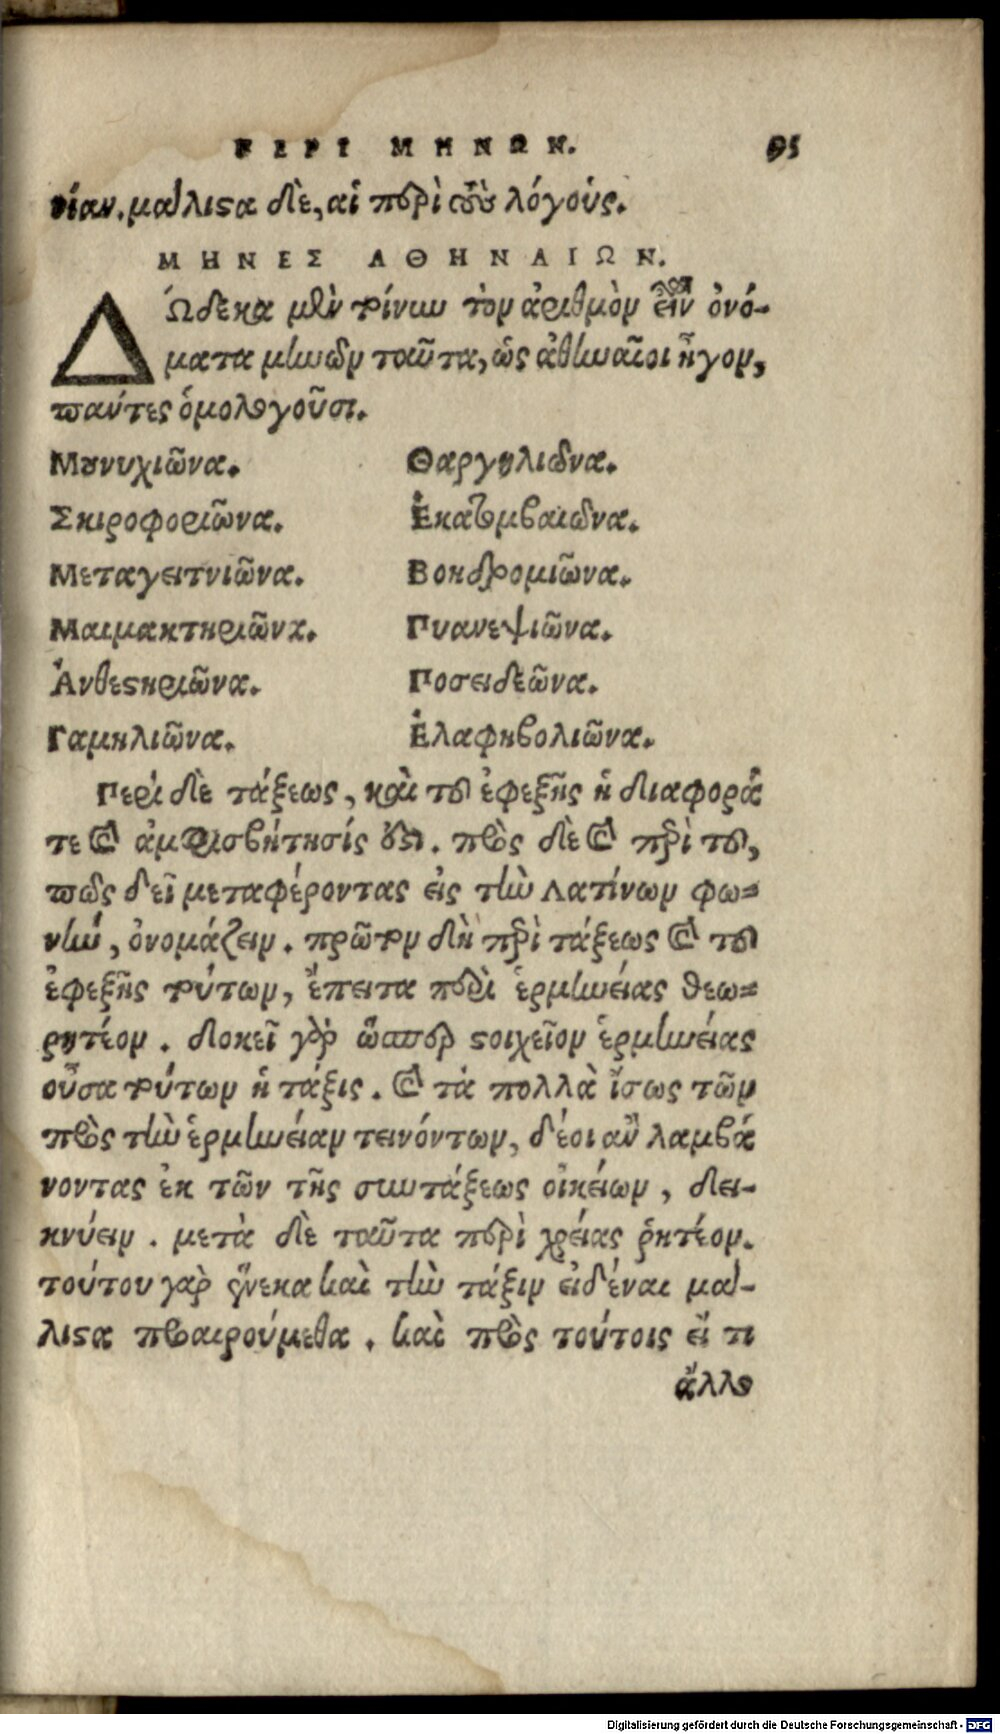 ΠΕΡΙ ΜΗΝΩΝ. 95
νίαν. μάλιστα δὲ, αἱ περὶ τοὺς λόγους.
ΜΗΝΕΣ ΑΘΗΝΑΙΩΝ.
ΔΏδεκα μὲν τοίνυν τὸν ἀριθμὸν εἶναι ὀνό-
ματα μηνῶν ταῦτα, ὡς ἀθηναῖοι ἦγον,
πάντες ὁμολογοῦσι.
Μουνυχιῶνα. Θαργηλιῶνα.
Σκιροφοριῶνα. Ἑκατομβαιῶνα.
Μεταγειτνιῶνα. Βοηδρομιῶνα.
Μαιμακτηριῶνα. Πυανεψιῶνα.
Ἀνθεστηριῶνα. Ποσειδεῶνα.
Γαμηλιῶνα. Ἐλαφηβολιῶνα.
Περὶ δὲ τάξεως, καὶ τοῦ ἐφεξῆς ἡ διαφορά
τε καὶ ἀμφισβήτησίς ἐστι. πρὸς δὲ καὶ περὶ τοῦ,
πῶς δεῖ μεταφέροντας εἰς τὴν Λατίνων φω=
νήν, ὀνομάζειν. πρῶτον δὴ περὶ τάξεως καὶ τοῦ
ἐφεξῆς τούτων, ἔπειτα περὶ ἑρμηνείας θεω=
ρητέον. δοκεῖ γὰρ ὥσπερ στοιχεῖον ἑρμηνείας
οὖσα τούτων ἡ τάξις. καὶ τὰ πολλὰ ἴσως τῶν
πρὸς τὴν ἑρμηνείαν τεινόντων, δέοι ἂν λαμβά
νοντας ἐκ τῶν τῆς συντάξεως οἰκείων, δει-
κνύειν. μετὰ δὲ ταῦτα περὶ χρείας ῥητέον.
τούτου γὰρ ἕνεκα καὶ τὴν τάξιν εἰδέναι μά-
λιστα προαιρούμεθα. καὶ πρὸς τούτοις εἴ τι
ἄλλο
Digitalisierung gefördert durch die Deutsche Forschungsgemeinschaft - DFG